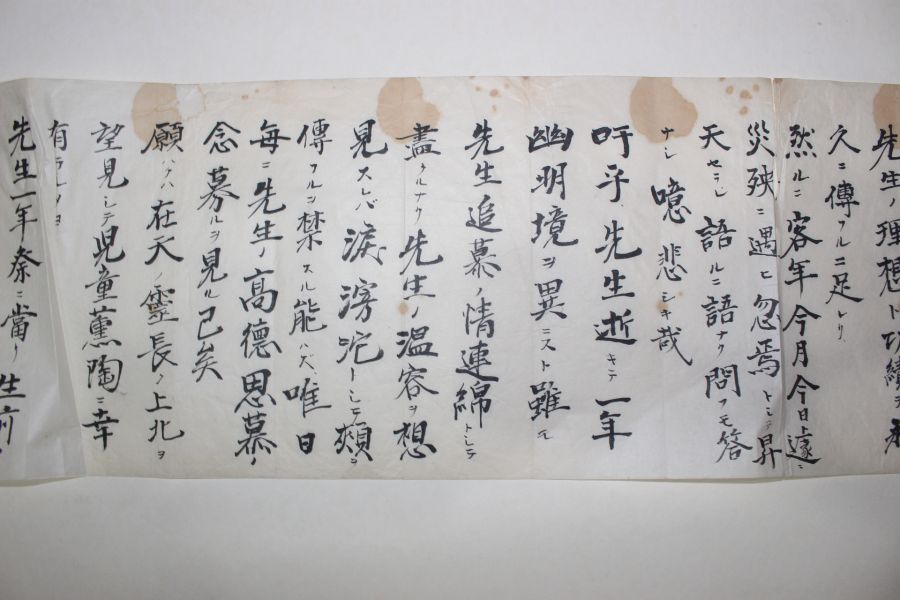 先生ノ理想ト功績ヲ永
久ニ傳フルニ足レリ
然ルニ客年今月今日遽ニ
災殃ニ遇ヒ忽焉トシテ昇
天セラレ語ルニ語ナク問フモ答
ナシ噫悲シキ哉
吁乎、先生逝キテ一年
幽明境ヲ異ニスト雖モ
先生追慕ノ情連綿トシテ
盡クルナク先生ノ温容ヲ想
見スレバ淚滂沱トシテ頰ヲ
傳フルヲ禁スル能ハズ唯日
每ニ先生ノ高德思慕ノ
念募ルヲ見ル已矣
願ハクハ在天ノ靈長ノ上北ヲ
望見シテ児童薰陶ニ幸
有ランヿヲ
先生一年祭ニ當リ生前